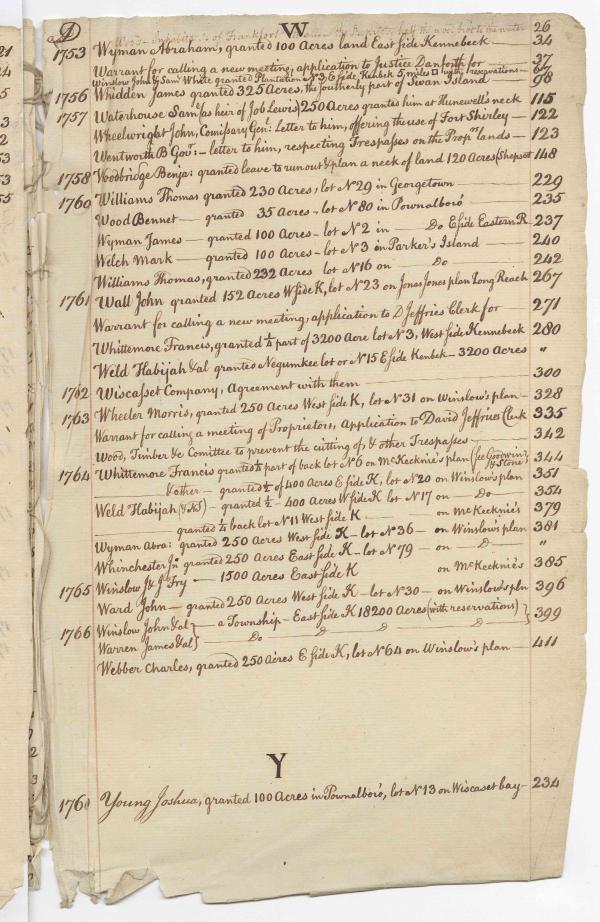 D W
Inhabitants of Frankfort 26
1753 Wyman Abraham, granted 100 Acres land East side Kennebeck — 34
Warrant for calling a new meeting, application to Justice Danforth for — 37
Winslow John & Saml White granted Plantation N3, E side, Kenbek 5 miles with reservations —
1756 Whidden James granted 325 Acres, the southerly part of Swan Island — 98
1757 Waterhouse Saml (as heir of Job Lewis) 250 Acres granted him at Hunewell's neck 115
Wheelwright John, Comissary Genl: Letter to him, offering the use of Fort Shirley — 122
Wentworth B Govr: — letter to him, respecting Trespasses on the Propm lands — 123
1758 Woodbridge Benja: granted leave to run out & plan a neck of land 120 Acres (Shepscot 148
1760 Williams Thomas granted 230 Acres, lot N29 in Georgetown — 229
Wood Bennet — granted 35 Acres - lot N80 in Pownalboro' — 235
Wyman James — granted 100 Acres - lot N2 in — Do E side Eastern R 237
Welch Mark — granted 100 Acres - lot N3 in Parker's Island — 240
Williams Thomas, granted 232 Acres lot N16 on — Do — 242
1761 Wall John granted 152 Acres W side K, lot N23 on Jonas Jones plan Long Reach 267
Warrant for calling a new meeting, application to D Jeffries Clerk for 271
Whittemore Francis, granted 1/2 part of 3200 Acre lot N3, West side Kennebeck 280
Weld Habijah &al grantes Negumkee lot or N15 E side Kenbek — 3200 Acres "
1762 Wiscasset Company, Agreement with them — 300
1763 Wheeler Morris, granted 250 Acres West side K, lot N31 on Winslow's plan — 328
Warrant for calling a meeting of Proprietors, Application to David Jeffries Clerk 335
Wood, Timber &c Comittee to prevent the cutting of, & other Trespasses — 342
1764 Whittemore Francis granted 1/2 part of back lot N6 on McKecknie's plan (see Goodwin & Stone) 344
& other — granted 1/2 of 400 Acres E side K, lot N20 on Winslow's plan 351
Weld Habijah — granted 1/2 — 400 Acres W side K lot N17 on — Do — 354
granted 1/2 back lot N11 West side K — on McKecknie's 379
Wyman Abra: granted 250 Acres West side K — lot N36 — on Winslow's plan 381
Whinchester Jr granted 250 Acres East side K — lot N79 — on — D — "
1765 Winslow J & J Fry — 1500 Acres East side K on McKecknie's 385
Ward John — granted 250 Acres West side K — lot N30 — on Winslow's pln 396
1766 Winslow John &al } — a Township — East side K 18200 Acres (with reservations) } 399
Warren James &al } Do D D D
Webber Charles, granted 250 Acres E side K, lot N64 on Winslow's plan — 411
Y
1760 Young Joshua, granted 100 Acres in Pownalboro', lot N13 on Wiscaset bay — 234